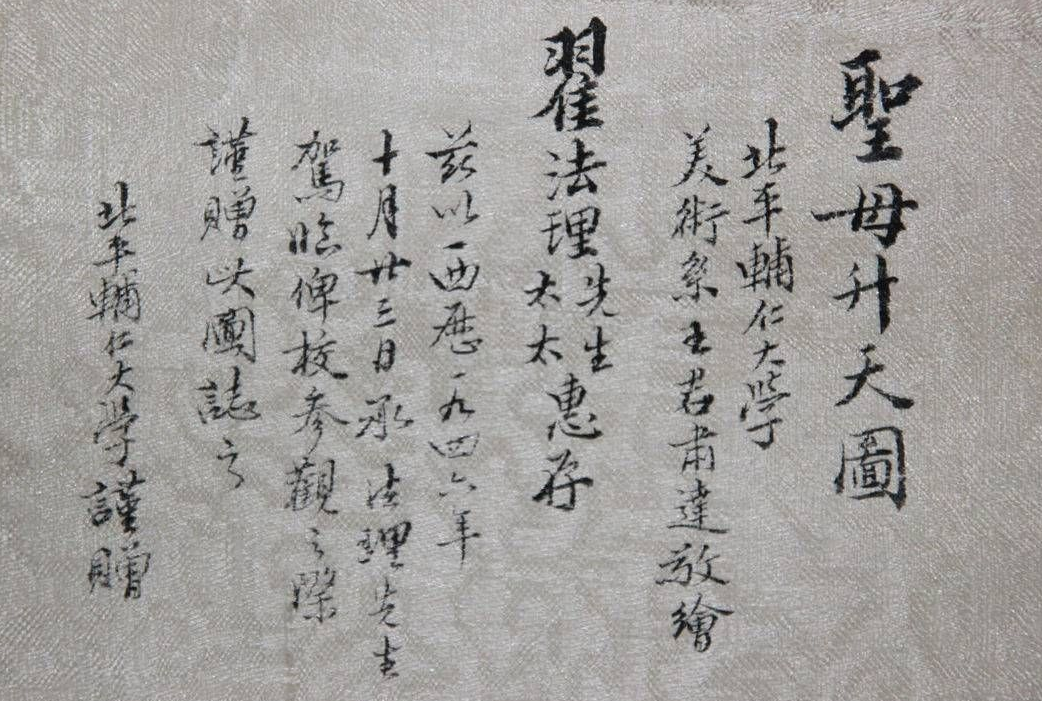 聖母升天圖
北平輔仁大學
美術系王君肅達敬繪
翟法理先生太太惠存
茲以西歷一九四六年
十月廿三日承法理先生
駕臨俾校參觀之際
謹贈此圖誌之
北平輔仁大學謹贈